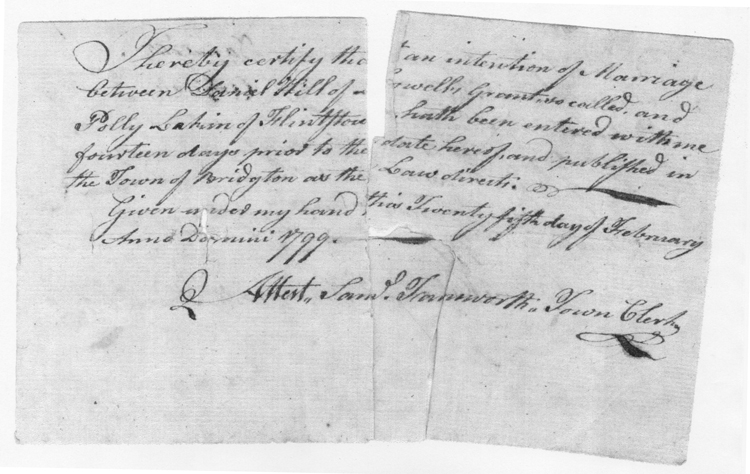 I hereby certify tha t an intention of Marriage
between Daniel Hill of Grant so called, and
Polly Lakin of Flint Tow hath been entered with me
fourteen days prior to the date hereof, and published in
the Town of Bridgton as the Law directs.
Given under my hand this Twenty fifth day of February
Anno Domini 1799.
Attest, Saml. Farnsworth, Town Clerk